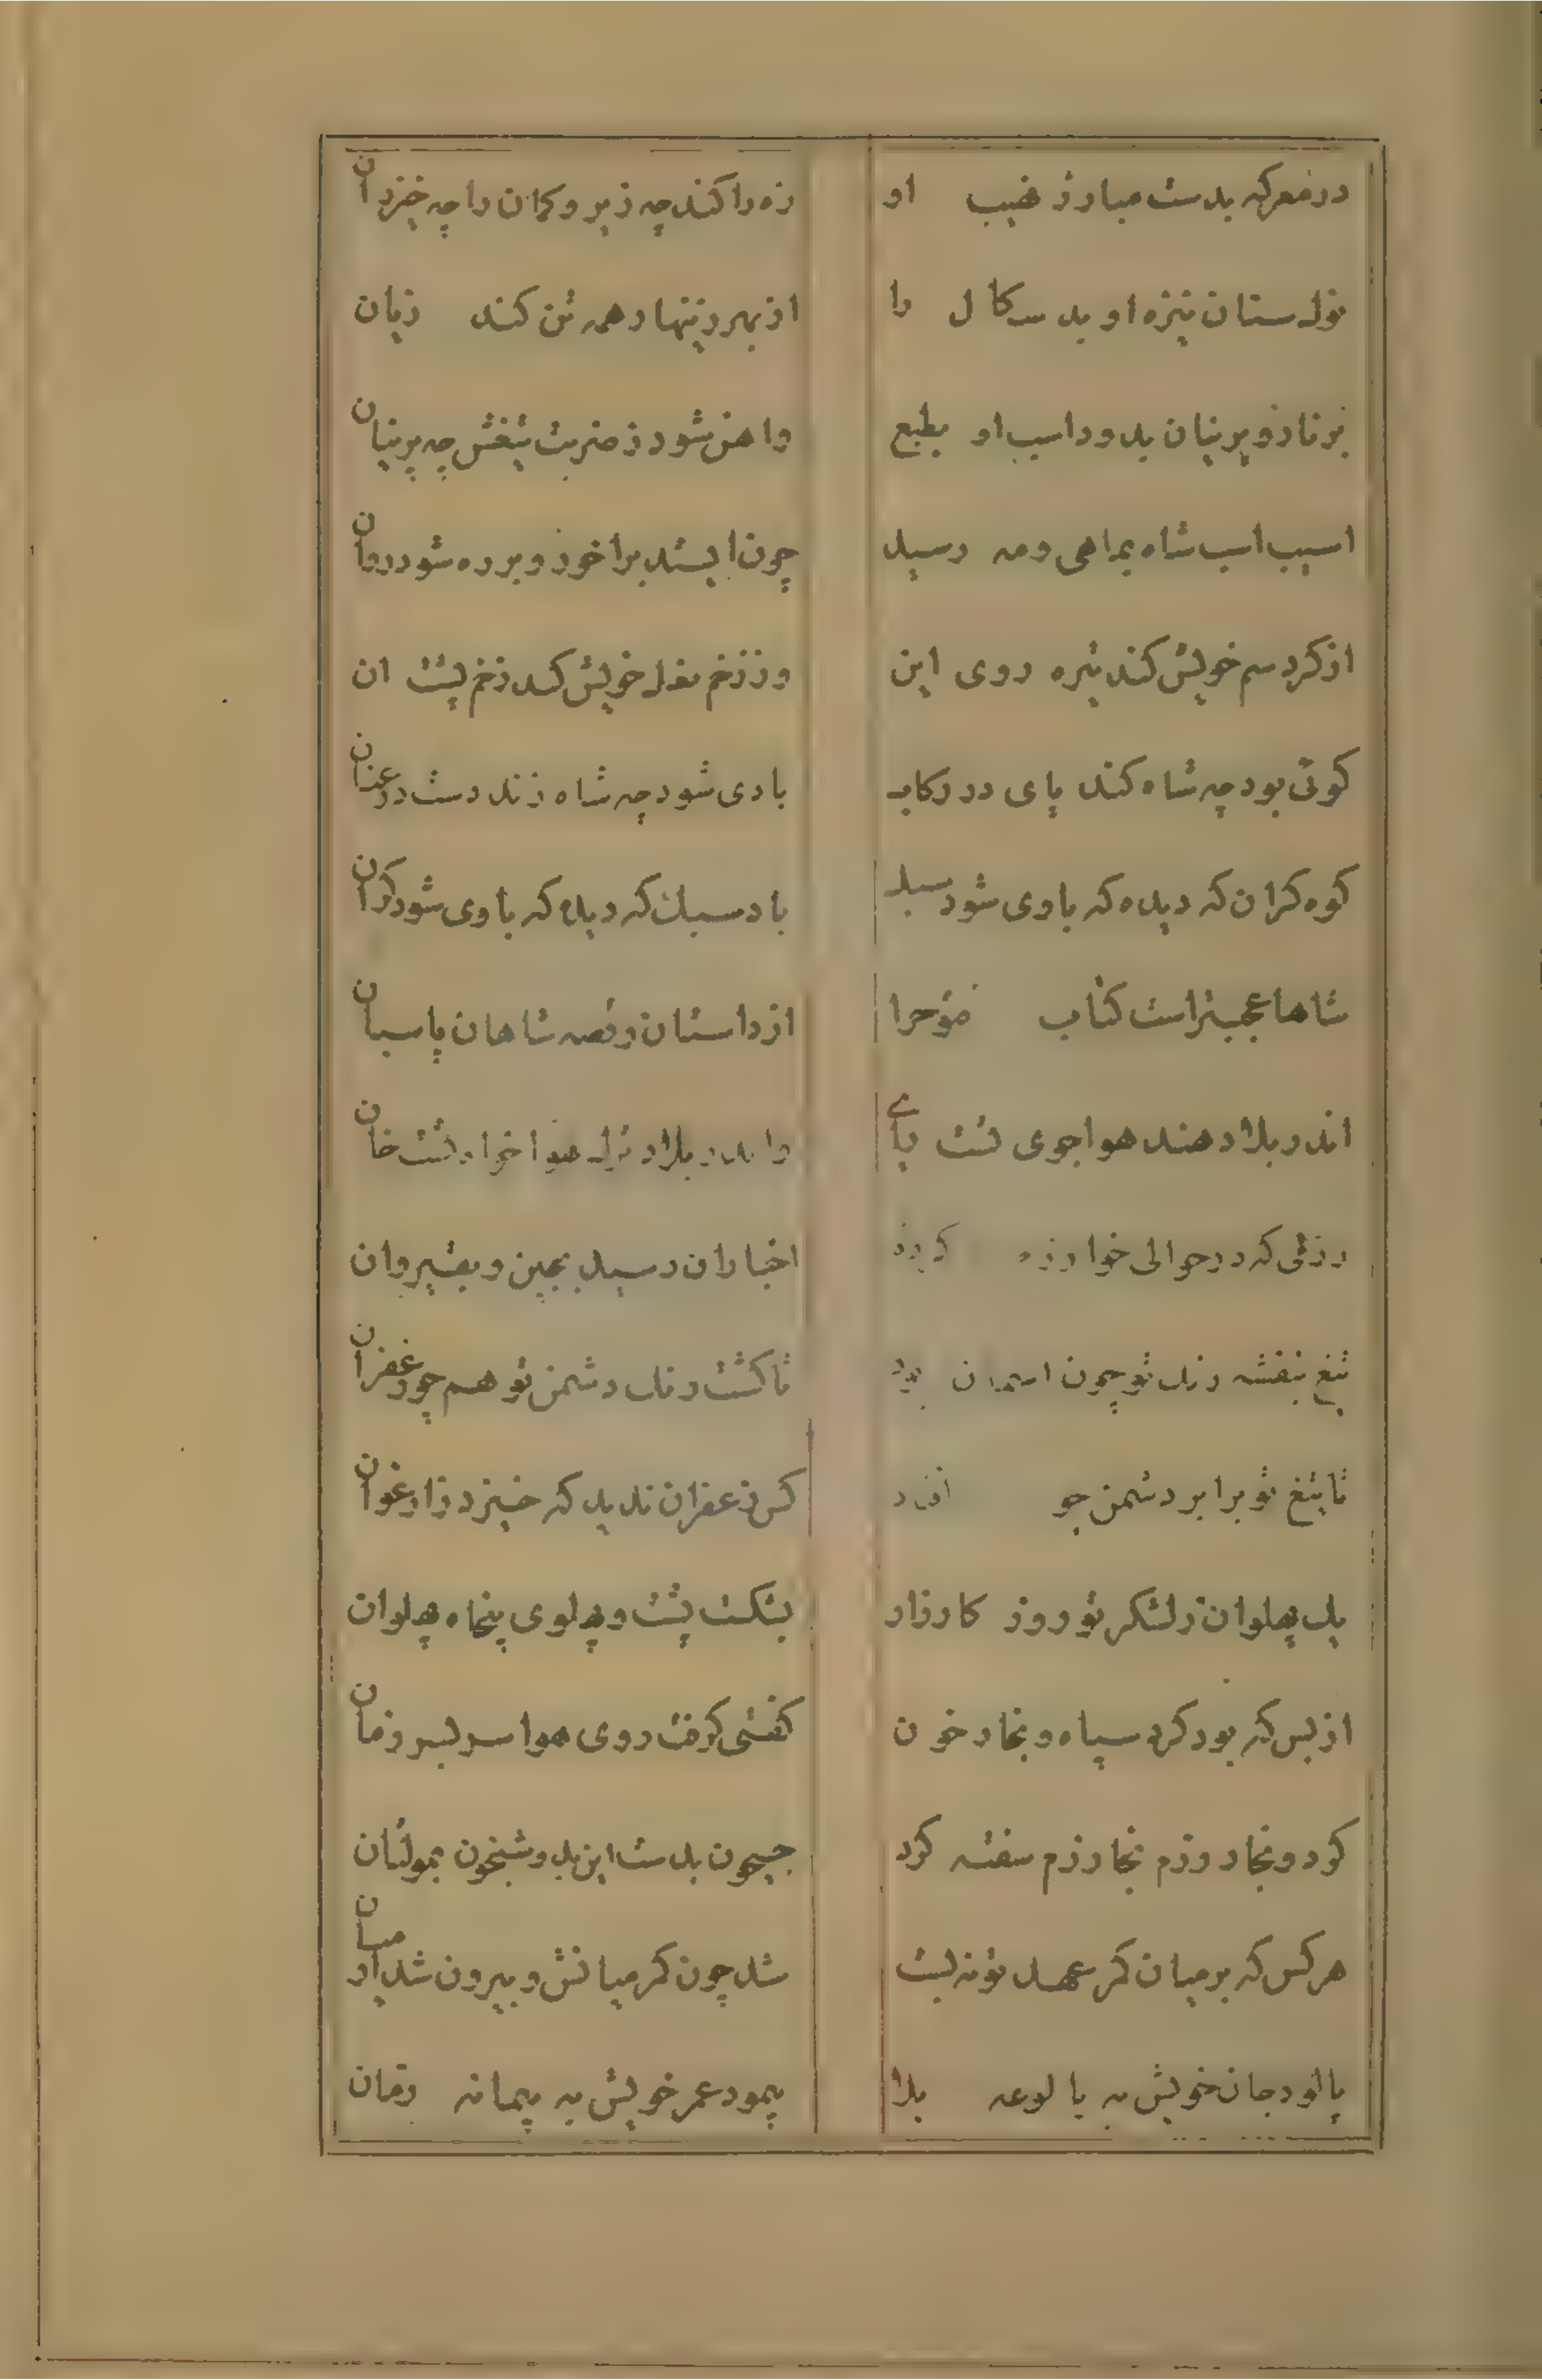 در معرکه بدست مبارز نهیب او
زه را کند چه زیر و کمان را چه خیزران
نوک سنان نیزه او بد سکال را
از بهر زینهار همه تن کند زبان
بر تار و پرنیان بدود اسب او بطبع
واهن شود ز ضربت تیغش چه پرنیان
اسیب اسب شاه بماهی و مه رسید
چون ایستد براخور و بر ره شود روان
از کرد سم خویش کند تیره روی این
وز زخم نعل خویش کند زخم پشت ان
کوئی بود چه شاه کند پای در رکاب
بادی شود چه شاه زند دست در عنان
کوه کران که دیده که باوی شود سبک
باد سبک که دیده که باوی شود کران
شاها عجبتر است کتاب فتوح را
از داستان و قصه شاهان باستان
اندر بلاد هند هواجوی تست رای
و اندر بلاد ترک هواخواه تست خان
رزمی که در حوالی خوارزم کرده
اخبار ان رسید بچین و بقیروان
تیغ بنفشه رنک تو چون اسمان بود
تا کشت رنک دشمن تو همچو زعفران
تا تیغ تو برابر دشمن چو
کس زعفران ندید که خیزد ز ارغوان
یک پهلوان ز لشکر تو روز کارزار
بشکست پشت و پهلوی پنجاه پهلوان
از بس که بود کرد سپاه و بخار خون
کفتی کرفت روی هوا سر بسر دخان
کرد و بخار رزم بخار رزم سفته کرد
جیحون بدست این بد و شبخون بمولتان
هر کس که بر میان کمر عهد تو نه بست
شد چون کمر میانش و بیرون شد از میان
پالود جان خویش به پالوعه بلا
پیمود عمر خویش به پیمانه زمان